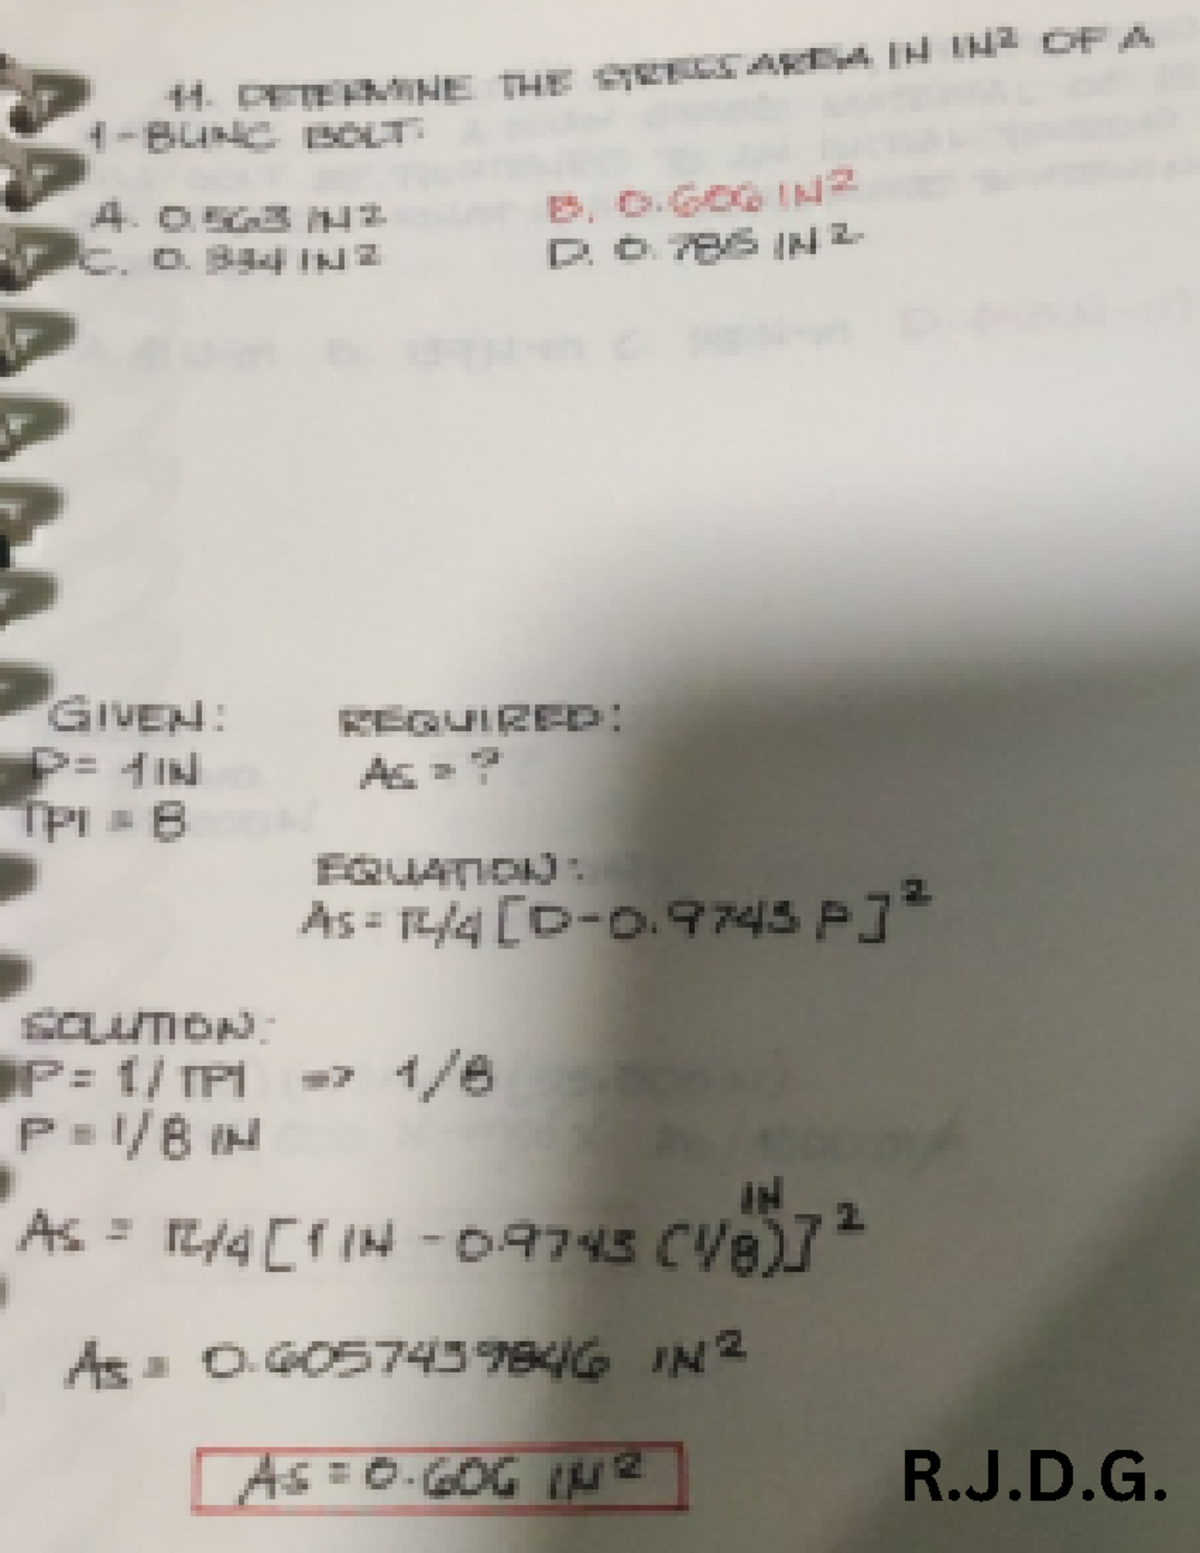 11. DETERMINE THE STRESS AREA IN IN² OF A
1-8UNC BOLT.
A. 0.563 IN²    B. 0.606 IN²
C. 0.334 IN²    D. 0.785 IN²
GIVEN:    REQUIRED:
D = 1 IN    AS = ?
TPI = 8
EQUATION:
AS = π/4 [D - 0.9743 P]²
SOLUTION:
P = 1 / TPI => 1/8
P = 1/8 IN
AS = π/4 [1 IN - 0.9743 (1/8 IN)]²
AS = 0.6057439846 IN²
AS = 0.606 IN²
R.J.D.G.